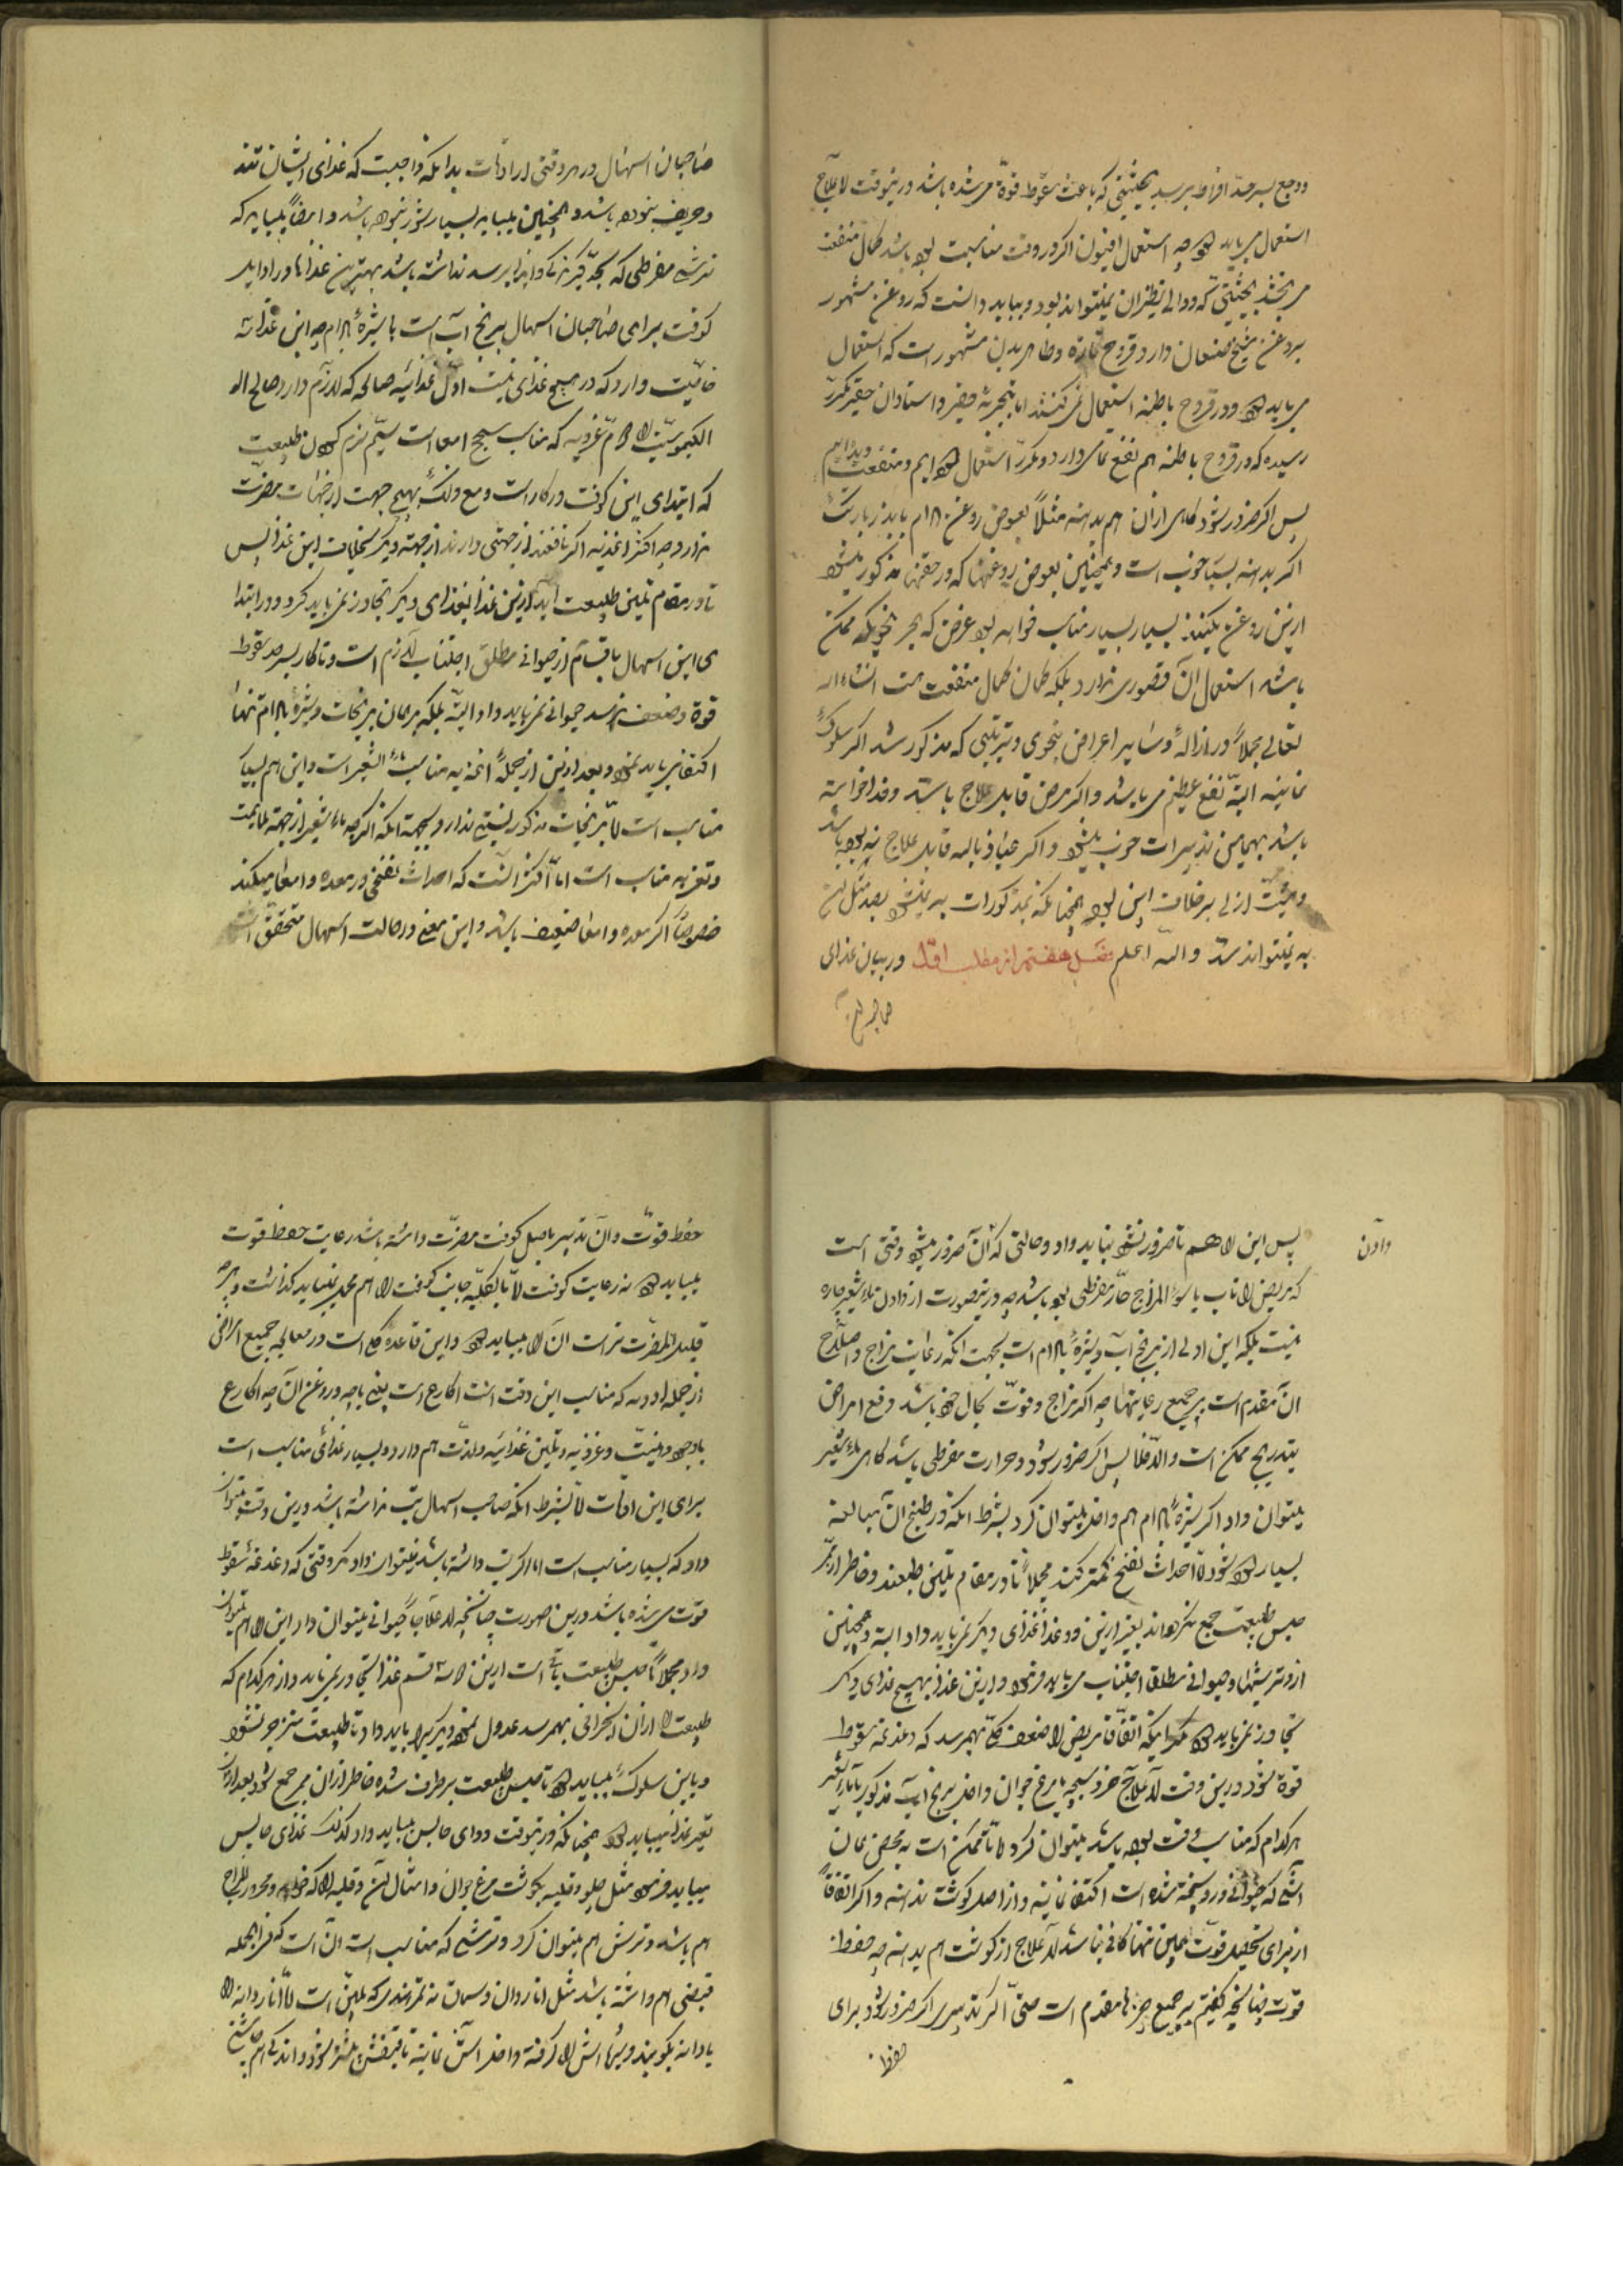 ووجع بسر حد افراط برسد بحیثیتی که باعث سقوط قوة مر شده باشد درینوقت لا علاج
استعمال میباید کرد چه استعمال افیون اگر در وقت مناسبت بوده باشد کمال منفعت
می بخشد بحیثیتی که دوائی نظیر آن نمیتواند بود و بباید دانست که روغن مشهور
بروغن شیخ صنعان دارد قروح تازه وظاهر بدن مشهور است که استعمال
میباید کرد ودر قروح باطنه استعمال نمیکنند اما بتجربه حقیر واستادان حقیر مکرر
رسیده که در قروح باطنه هم نفع تمامی دارد ومکرر استعمال کرده ایم ومنفعت دیده ایم
پس اگر ضرور شود گاهی ازان هم بدهند مثلا بعوض روغن بادام باید زیاد
اگر بدهند بسیار خوب است وهمچنین بعوض روغنها که در حقنها مذکور میشود
ازین روغن بکنند بسیار بسیار مناسب خواهد بود غرض که بهر نحو که ممکن
باشد استعمال آن قصوری ندارد بلکه کمال منفعت هست انشاءالله
تعالی مجملا در ازاله وسایر اعراض بنحوی وترتیبی که مذکور شد اگر سلوک
نمایند البته نفع عظیم میباشد واگر مرض قابل علاج باشد وخدا خواسته
باشد بهمین تدبیرات خوب میشود واگر عیاذ بالله قابل علاج نبوده باشد
ومشیت ازلی برخلاف این بوده همچنانکه بمذکورات به نمیشود بعد مثل این
به نمیتواند شد والله اعلم فصل هفتم از مطلب اول در بیان غذای
صاحبان
صاحبان اسهال در هر وقتی از اوقات بدانکه واجبست که غذای ایشان تند
وحریف نبوده باشد وهمچنین میباید بسیار شور نبوده باشد وایضا میباید که
ترشی مفرطی که بحد گزندگی وایذا برسد نداشته باشد بهترین غذاها در اوایل
کوفت برای صاحبان اسهال برنج آب است با شیره بادام چه این غذا سه
خاصیت دارد که در هیچ غذای نیست اول غذائیه صالحه که لازم دارد صالح
الکیموسیت را دوم غرویه که مناسب سحج امعا است سیم نرم کردن طبیعت
که ابتدای این کوفت در کار است ومع ذلک بهیچ جهت از جهات مضرت
ندارد چه اکثر اغذیه اگر نافعند از جهتی دارند از جهة دیگر بخلاف این غذا پس
تا در مقام تلیین طبیعت اند ازین غذا بغذای دیگر تجاوز نمیباید کرد ودر ابتدا
ی این اسهال باقسام از حیوانی مطلق اجتناب لازم است وتا کار بسرحد سقوط
قوة وضعف نرسد حیوانی نمیباید داد البته بلکه بهمان برنجات وشیره بادام تنها
اکتفا میباید نمود وبعد ازین از جمله اغذیه مناسب ماء الشعیر است واین هم بسیار
مناسب است لا برنجات مذکور نسبتی ندارد بجهة آنکه اگرچه ماء شعیر از جهة ملایمت
وتغذیه مناسب است اما اکثر آنست که احداث نفخی در معده وامعا میکند
خصوصا اگر معده وامعا ضعیف باشد واین معنی در حالت اسهال متحقق است
دادن
پس این را هم تا ضرور نشود نباید داد وحالتی که آن ضرور میشود وقتی است
که مریض را تب یا سوء المزاج حار مفرطی بوده باشد چه درینصورت از دادن ماء شعیر چاره
نیست بلکه این اولی از برنج آب وشیره بادام است بجهت آنکه رعایت مزاج واصلاح
آن مقدم است بر جمیع رعایتها چه اگر مزاج وقوت بحال خود باشد دفع امراض
بتدریج ممکن است والا فلا پس اگر ضرور شود وحرارت مفرطی باشد گاهی ماء شعیر
میتوان داد اگر شیره بادام هم داخل میتوان کرد بشرط آنکه در طبخ آن مبالغه
بسیار کرده شود تا احداث نفخ کمتر کند مجملا تا در مقام تلیین طبعند وخاطر از ممر
حبس طبیعت جمع نکرده اند بغیر ازین دو غذا غذای دیگر نمیباید داد البته وهمچنین
از ترشیها وحیوانی مطلقا اجتناب میباید فرمود وازین غذا بهیچ غذای دیگر
تجاوز نمیباید کرد مگر اینکه اتفاقا مریض را ضعف کلی بهمرسد که دغدغه سقوط
قوة شود درین وقت لا علاج جزو سیجه یا مرغ جوان داخل برنج آب مذکور یا ماء شعیر
هر کدام که مناسب وقت بوده باشد میتوان کرد لا تا ممکن است به محض همان
آشی که حیوانی درو پخته شده است اکتفا نمایند واز اصل گوشت ندهند واگر اتفاقا
از برای تحصیل قوت همین تنها کافی نباشد لا علاج از گوشت هم بدهند چه حفظ
قوت چنانچه گفتیم بر جمیع چیزها مقدم است حتی اگر تدبیری اگر ضرور شود برای
حفظ
حفظ قوت وآن تدبیر باصل کوفت مضرت داشته باشد رعایت حفظ قوت
میباید کرد نه رعایت کوفت لا بالکلیه جانب کوفت را هم مهمل نمیباید گذاشت وهر چه
قلیل المضرت تر است آن را میباید کرد واین قاعده کلی است در معالجه جمیع امراض
از جمله ادویه که مناسب این وقت است اکارع است یعنی پاچه وروغن آن چه اکارع
باوجود دهنیت وغرویه وتلیین غذائیه ولذت هم دارد وبسیار غذای مناسب است
برای این اوقات لا بشرط آنکه صاحب اسهال تب نداشته باشد درین وقت میتوان
داد که بسیار مناسب است اما اگر تب داشته باشد نمیتوان داد مگر وقتی که دغدغه سقوط
قوت می شده باشد درین صورت چنانچه لا علاجا حیوانی میتوان داد این را هم میتوان
داد مجملا تا حبس طبیعت باقی است ازین سه قسم غذا تجاوز نمیباید واز هر کدام که
طبیعت را از آن انحرافی بهمرسد عدول نموده دیگریرا باید داد تا طبیعت منزجر نشود
وباین سلوک میباید کرد تا حبس طبیعت برطرف شده خاطر از آن ممر جمع شود بعد ازان
تغیر غذا میباید کرد همچنانکه درینوقت دوای حابس میباید داد کذلک غذای حابس
میباید فرمود مثل چلو وقلیه بگوشت مرغ جوان وامثال آن وقلیه را که خواهد ومحرور المزاج
هم باشد وترش هم میتوان کرد وترشی که مناسب است آن است که فی الجمله
قبضی هم داشته باشد مثل انار دان وسماق نه تمرهندی که ملین است لا انار دانه را
با دانه بکوبند وشیره اش را گرفته داخل آش نمایند تا قبضش بیشتر شود واندکی